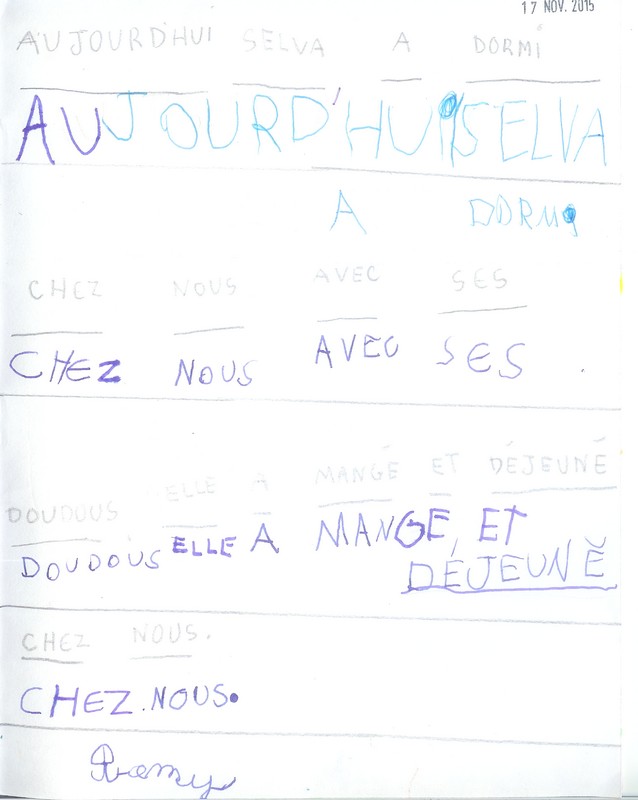 17 NOV. 2015
AUJOURD'HUI SELVA A DORMI
AUJOURD'HUI SELVA
A DORMI
CHEZ NOUS AVEC SES
CHEZ NOUS AVEC SES
DOUDOUS ELLE A MANGÉ ET DÉJEUNÉ
DOUDOUS ELLE A MANGE, ET
DÉJEUNÉ
CHEZ NOUS.
CHEZ.NOUS.
Romy